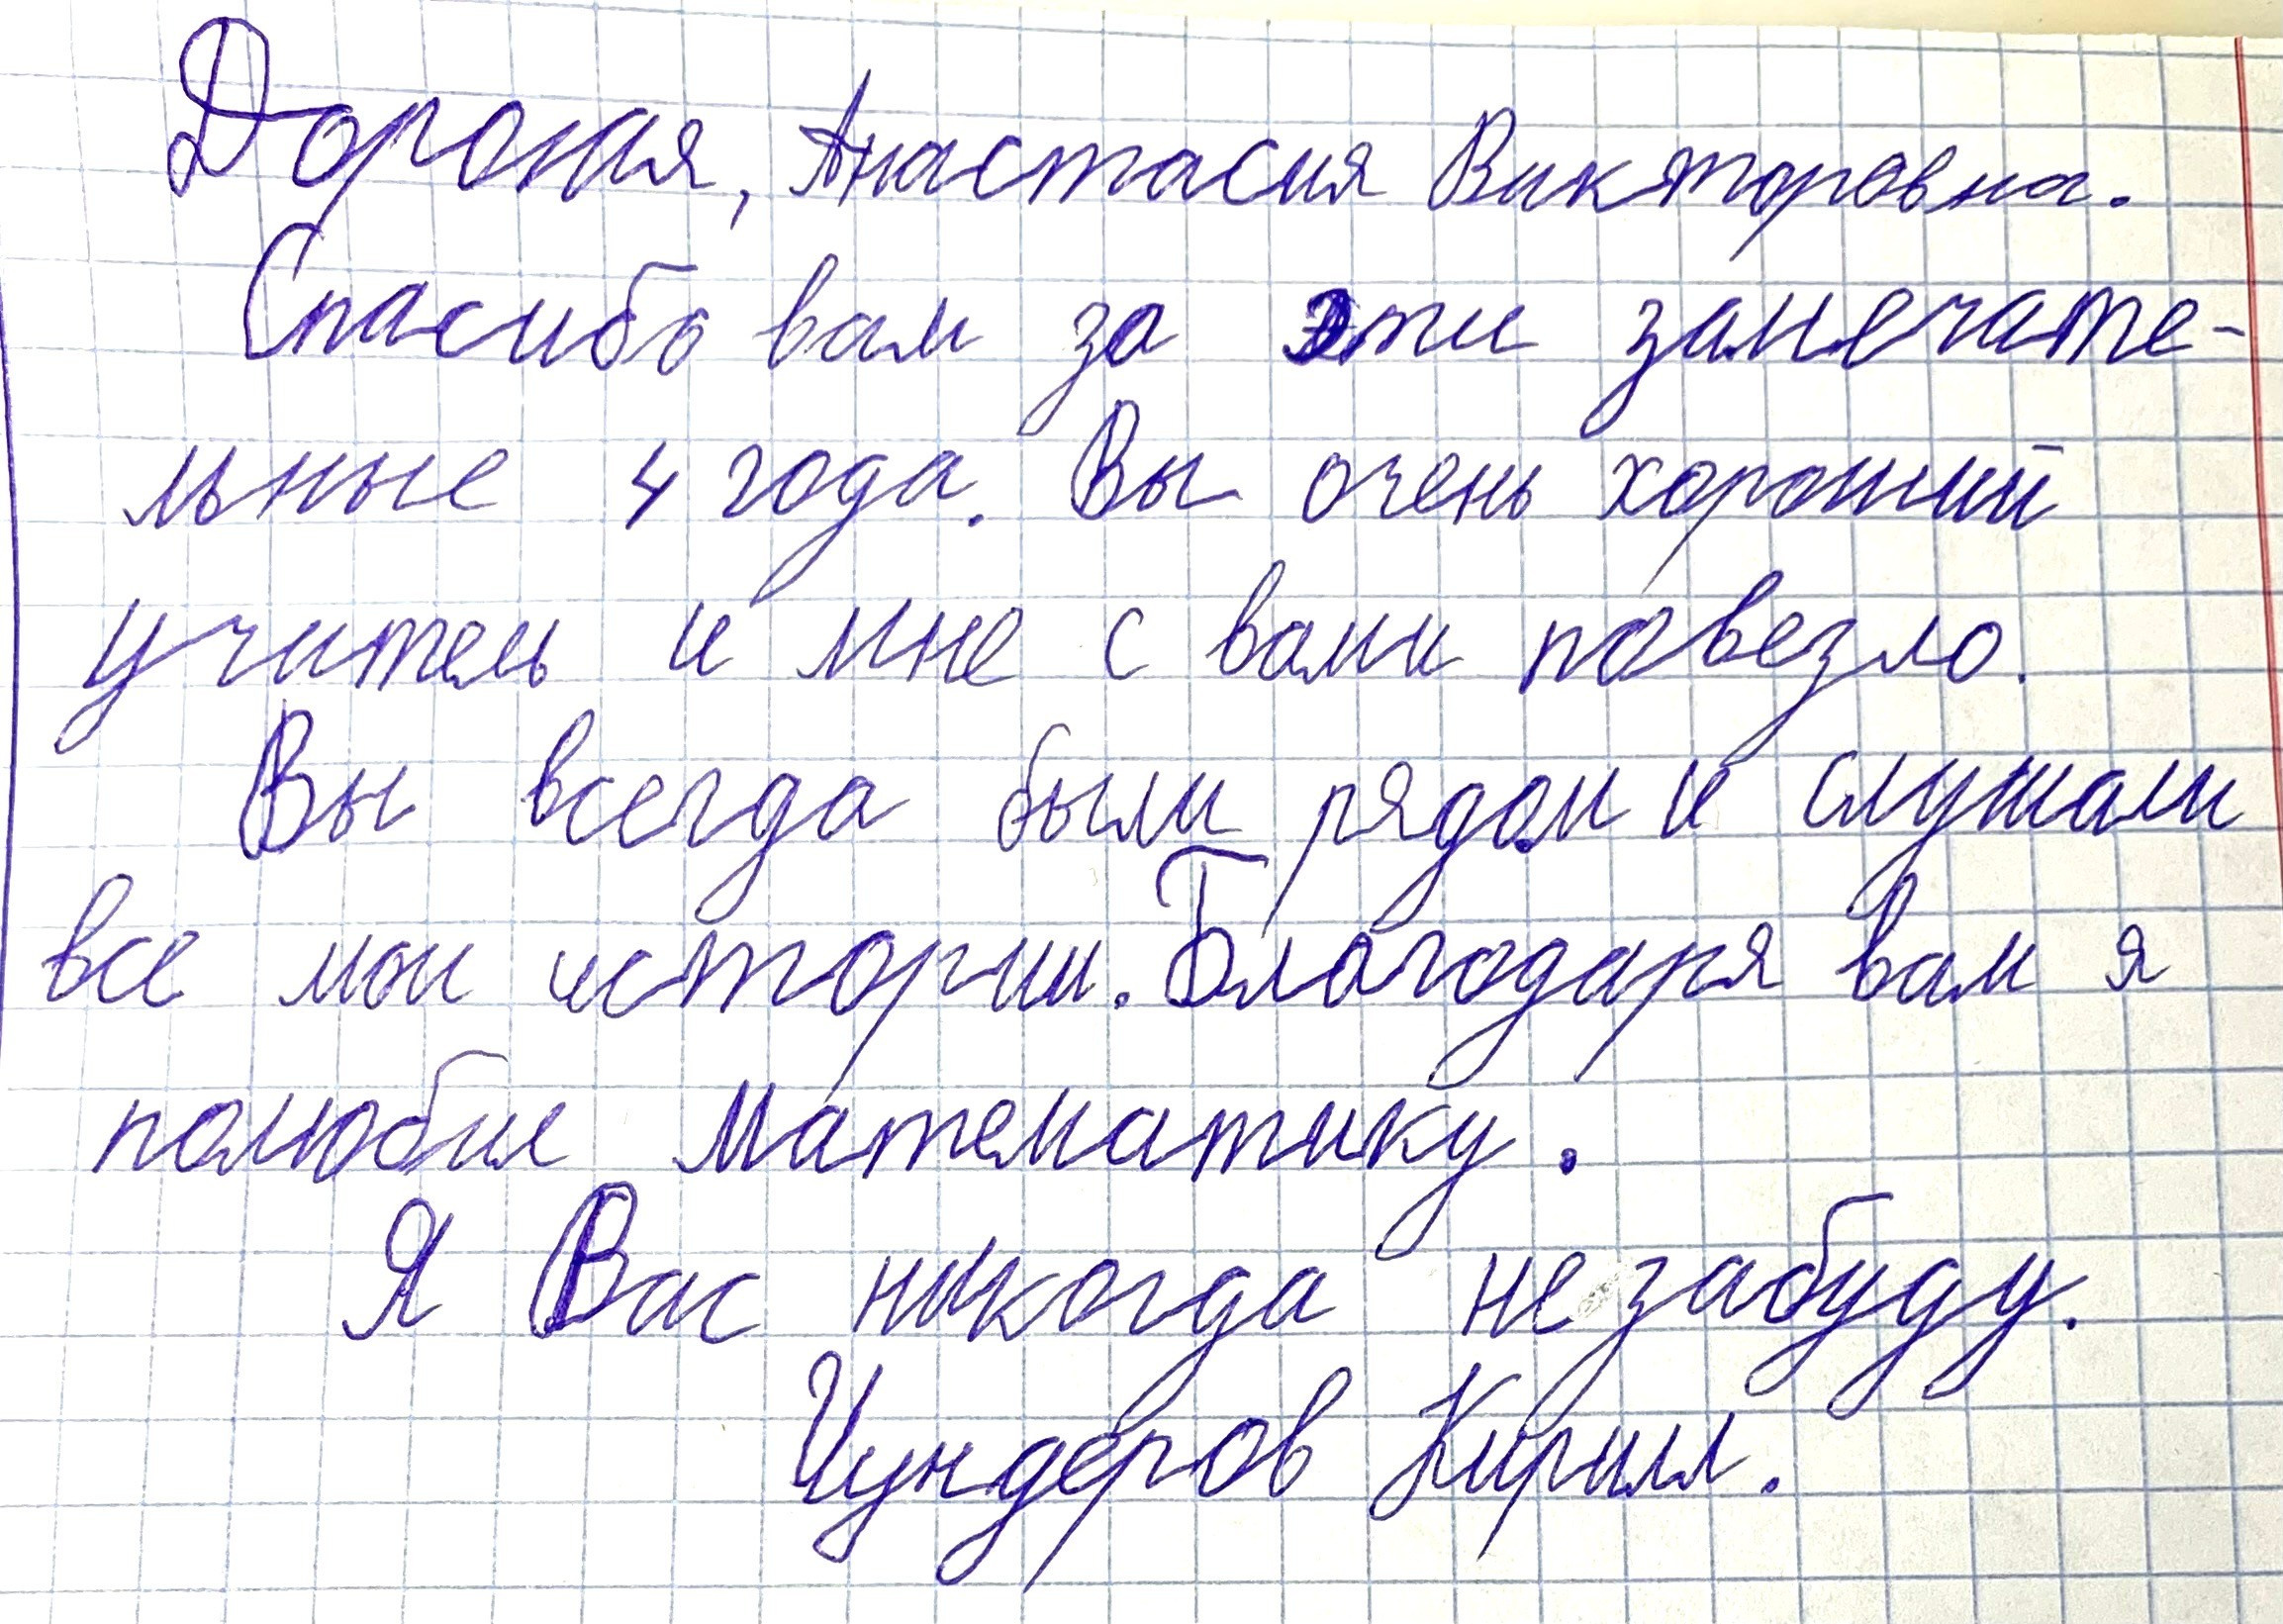 Дорогая, Анастасия Викторовна.
Спасибо вам за эти замечате-
льные 4 года. Вы очень хороший
учитель и мне с вами повезло.
Вы всегда были рядом и слушали
все мои истории. Благодаря вам я
полюбил математику.
Я Вас никогда не забуду.
Чундеров Кирилл.